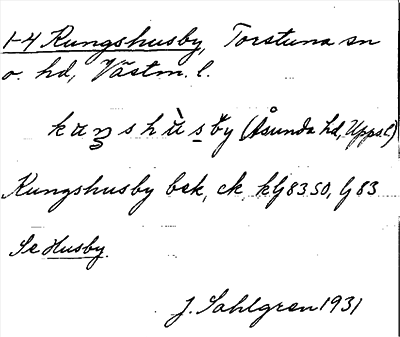 1-4 Kungshusby, Torstuna sn
o. hd, Västm. l.
kuŋshùsby (Åsunda hd, Upps.l)
Kungshusby bek, ck. kG 83 50, G 83
Se Husby.
J. Sahlgren 1931